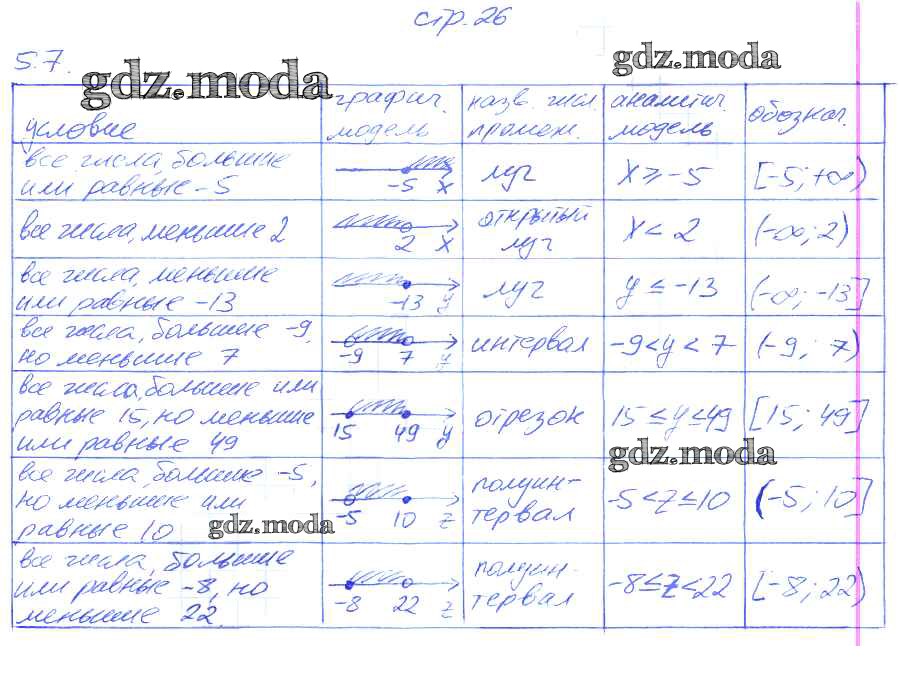 стр. 26
5.7.
gdz.moda
gdz.moda
условие
графич.
модель
назв. числ.
промеж.
аналитич.
модель
обознач.
все числа, большие
или равные -5
-5 x
луч
x ≥ -5
[-5; +∞)
все числа, меньшие 2
2 x
открытый
луч
x < 2
(-∞; 2)
все числа, меньшие
или равные -13
-13 y
луч
y ≤ -13
(-∞; -13]
все числа, большие -9,
но меньшие 7
-9 7 y
интервал
-9<y<7
(-9; 7)
все числа, большие или
равные 15, но меньшие
или равные 49
15 49 y
отрезок
15≤y≤49
[15; 49]
gdz.moda
все числа, большие -5,
но меньшие или
равные 10
-5 10 z
полуин-
тервал
-5<z≤10
(-5; 10]
gdz.moda
все числа, большие
или равные -8, но
меньшие 22.
-8 22 z
полуин-
тервал
-8≤z<22
[-8; 22)